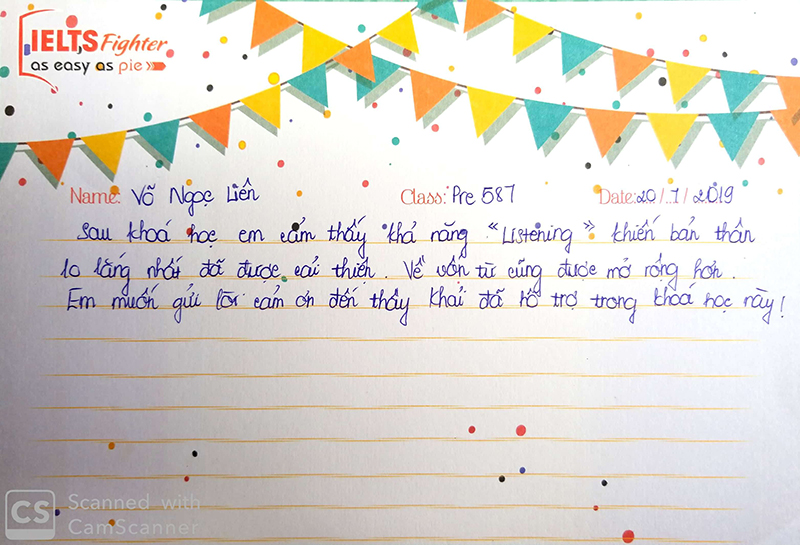 IELTS Fighter
as easy as pie
Name: Võ Ngọc Liên Class: Pre 587 Date: 20/7/2019
Sau khoá học em cảm thấy khả năng "Listening" khiến bản thân
lo lắng nhất đã được cải thiện. Về vốn từ cũng được mở rộng hơn.
Em muốn gửi lời cảm ơn đến thầy Khải đã hỗ trợ trong khoá học này!
CS Scanned with
CamScanner